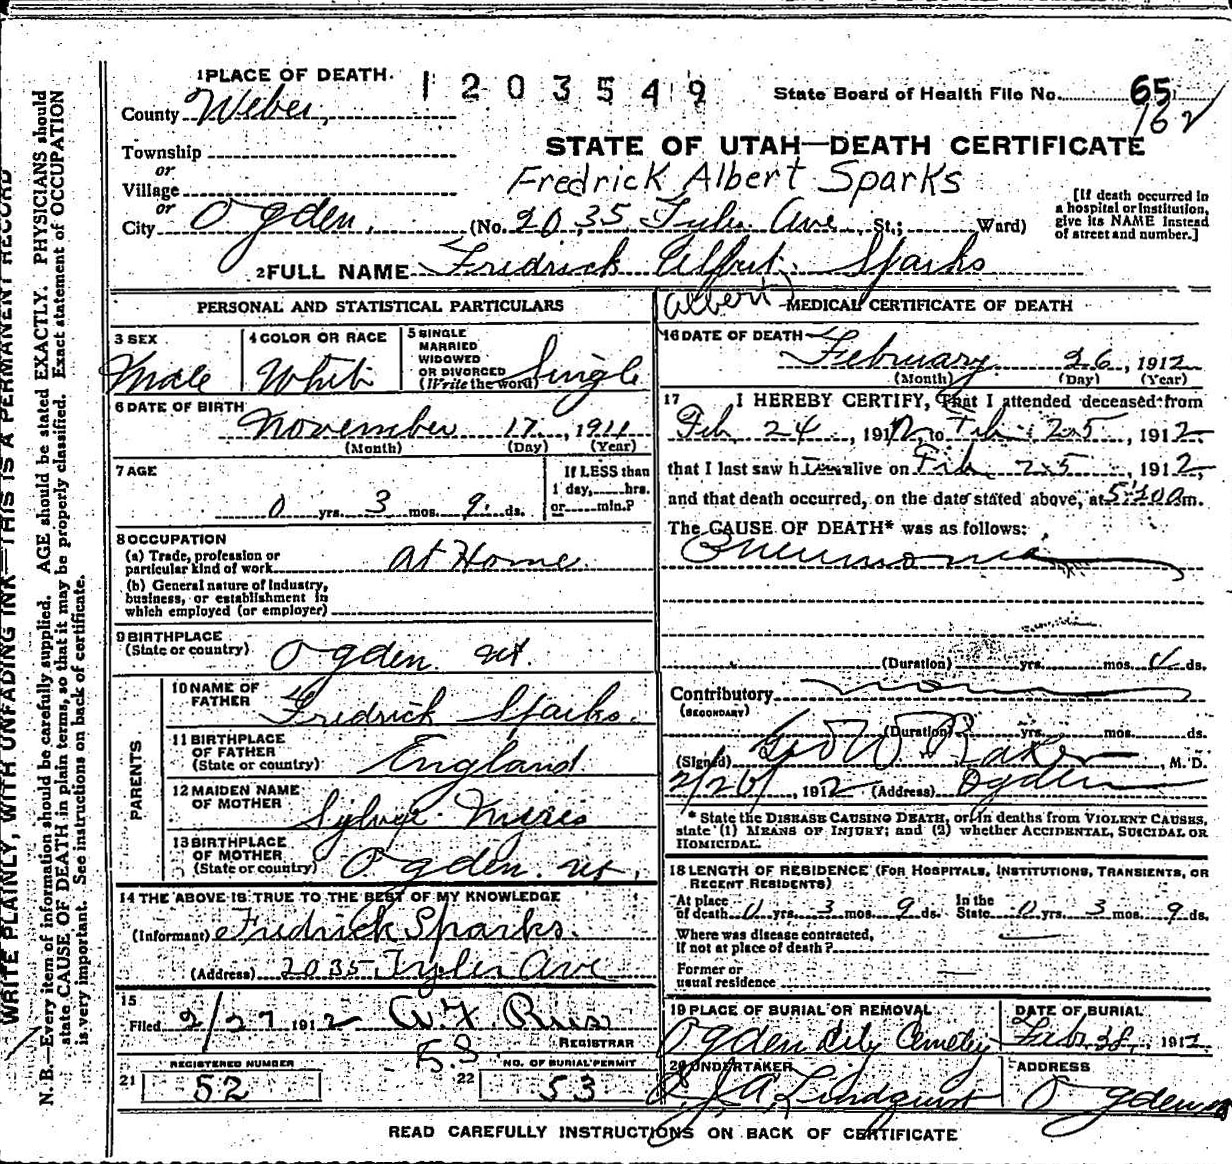 1 PLACE OF DEATH.
1203549
State Board of Health File No. 65
162
County Weber,
STATE OF UTAH—DEATH CERTIFICATE
Township
or
Village
Fredrick Albert Sparks
or
City Ogden, (No. 2035 Tyler Ave St.; Ward)
[If death occurred in
a hospital or institution,
give its NAME instead
of street and number.]
2 FULL NAME Fredrick Alfret Sparks
(Albert)
PERSONAL AND STATISTICAL PARTICULARS
3 SEX
Male
4 COLOR OR RACE
White
5 SINGLE
MARRIED
WIDOWED
OR DIVORCED
(Write the word) Single
6 DATE OF BIRTH
November 17, 1911
(Month) (Day) (Year)
7 AGE
0 yrs. 3 mos. 9 ds.
If LESS than
1 day, hrs.
or min.?
8 OCCUPATION
(a) Trade, profession or
particular kind of work at Home
(b) General nature of Industry,
business, or establishment in
which employed (or employer)
9 BIRTHPLACE
(State or country) Ogden Ut.
PARENTS
10 NAME OF
FATHER Fredrick Sparks.
11 BIRTHPLACE
OF FATHER
(State or country) England.
12 MAIDEN NAME
OF MOTHER
13 BIRTHPLACE
OF MOTHER
(State or country) Ogden Ut.
14 THE ABOVE IS TRUE TO THE BEST OF MY KNOWLEDGE
(Informant) Fredrick Sparks.
(Address) 2035 Tyler Ave
15
Filed 2/27 1912
REGISTRAR
53
REGISTERED NUMBER
21 52
NO. OF BURIAL PERMIT
22 53
MEDICAL CERTIFICATE OF DEATH
16 DATE OF DEATH
February 26, 1912
(Month) (Day) (Year)
17 I HEREBY CERTIFY, That I attended deceased from
Feb 24, 1912, to Feb 25, 1912
that I last saw him alive on Feb 25, 1912,
and that death occurred, on the date stated above, at m.
The CAUSE OF DEATH* was as follows:
Pneumonia
(Duration) yrs. mos. ds.
Contributory
(SECONDARY)
(Duration) yrs. mos. ds.
(Signed) Geo W Baker, M. D.
2/26, 1912 (Address) Ogden
* State the DISEASE CAUSING DEATH, or in deaths from VIOLENT CAUSES,
state (1) MEANS OF INJURY; and (2) whether ACCIDENTAL, SUICIDAL OR
HOMICIDAL.
18 LENGTH OF RESIDENCE (FOR HOSPITALS, INSTITUTIONS, TRANSIENTS, OR
RECENT RESIDENTS)
At place
of death 0 yrs. 3 mos. 9 ds.
In the
State 0 yrs. 3 mos. 9 ds.
Where was disease contracted,
If not at place of death?
Former or
usual residence
19 PLACE OF BURIAL OR REMOVAL
Ogden City Cemetery
DATE OF BURIAL
Feb 28, 1912
20 UNDERTAKER
J A Lindquist
ADDRESS
Ogden
READ CAREFULLY INSTRUCTIONS ON BACK OF CERTIFICATE
WRITE PLAINLY, WITH UNFADING INK—THIS IS A PERMANENT RECORD
N. B.—Every item of information should be carefully supplied. AGE should be stated EXACTLY. PHYSICIANS should
state CAUSE OF DEATH in plain terms, so that it may be properly classified. Exact statement of OCCUPATION
is very important. See instructions on back of certificate.